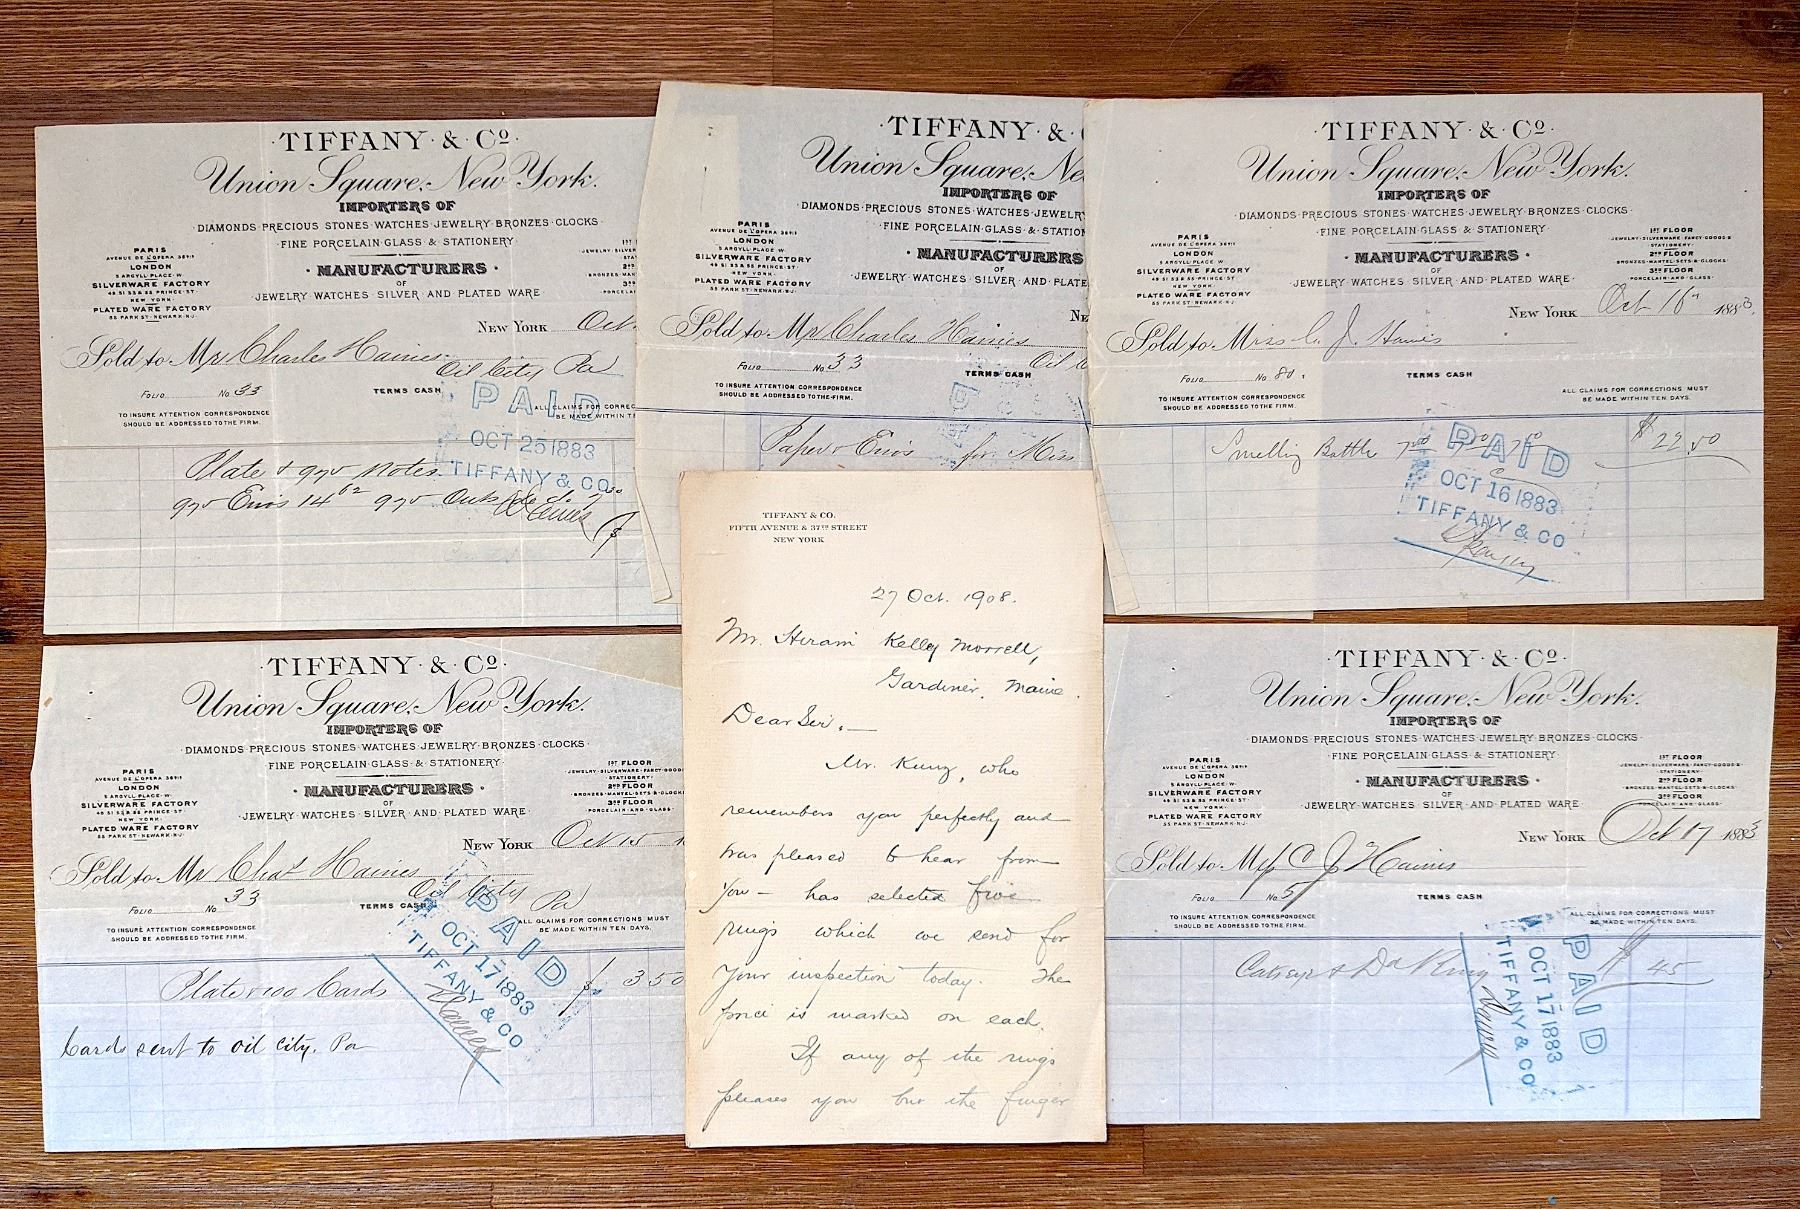 ·TIFFANY·&·Co·
Union Square, New York.
IMPORTERS OF
·DIAMONDS·PRECIOUS STONES·WATCHES·JEWELRY·BRONZES·CLOCKS·
·FINE PORCELAIN·GLASS & STATIONERY·
·MANUFACTURERS·
OF
·JEWELRY·WATCHES·SILVER AND PLATED WARE·
PARIS
AVENUE DE L'OPERA 36BIS
LONDON
5 ARGYLL·PLACE·W.
SILVERWARE FACTORY
49 51 53 & 55 PRINCE·ST
NEW YORK·
PLATED WARE FACTORY
55 PARK ST·NEWARK·N·J·
NEW YORK Oct
Sold to Mr Charles Haines
Oil City Pa
FOLIO No 33
TERMS CASH
TO INSURE ATTENTION CORRESPONDENCE
SHOULD BE ADDRESSED TO THE FIRM.
ALL CLAIMS FOR CORREC
BE MADE WITHIN TE
PAID
OCT 25 1883
TIFFANY & CO.
Plate & Notes
·TIFFANY·&·
Union Square, Ne
IMPORTERS OF
·DIAMONDS·PRECIOUS STONES·WATCHES·JEWELRY
·FINE PORCELAIN·GLASS & STATION
·MANUFACTURERS
OF
·JEWELRY·WATCHES·SILVER AND PLAT
PARIS
AVENUE DE L'OPERA 36BIS
LONDON
5 ARGYLL·PLACE·W.
SILVERWARE FACTORY
49 51 53 & 55 PRINCE·ST·
NEW YORK·
PLATED WARE FACTORY
55 PARK ST·NEWARK·N·J·
NE
Sold to Mr Charles Haines
Oil
FOLIO No 33
TERMS CASH
TO INSURE ATTENTION CORRESPONDENCE
SHOULD BE ADDRESSED TO·THE·FIRM.
Paper & Envs for Miss
·TIFFANY·&·Co·
Union Square, New York.
IMPORTERS OF
·DIAMONDS·PRECIOUS STONES·WATCHES·JEWELRY·BRONZES·CLOCKS·
·FINE PORCELAIN·GLASS & STATIONERY·
·MANUFACTURERS·
OF
·JEWELRY·WATCHES·SILVER AND PLATED WARE·
PARIS
AVENUE DE L'OPERA 36BIS
LONDON
5 ARGYLL·PLACE·W.
SILVERWARE FACTORY
49 51 53 & 55 PRINCE·ST
NEW YORK·
PLATED WARE FACTORY
55 PARK ST·NEWARK·N·J·
1ST FLOOR
JEWELRY·SILVERWARE·FANCY·GOODS·&
·STATIONERY·
2ND FLOOR
·BRONZES·MANTEL·SETS·&·CLOCKS
3RD FLOOR
·PORCELAIN·AND·GLASS·
NEW YORK Oct 16 1883.
Sold to Miss C. J. Haines
FOLIO No 80.
TERMS CASH
TO INSURE ATTENTION CORRESPONDENCE
SHOULD BE ADDRESSED TO THE FIRM.
ALL CLAIMS FOR CORRECTIONS MUST
BE MADE WITHIN TEN DAYS.
Smelling Bottle $22.50
PAID
OCT 16 1883
TIFFANY & CO
·TIFFANY·&·Co·
Union Square, New York.
IMPORTERS OF
·DIAMONDS·PRECIOUS STONES·WATCHES·JEWELRY·BRONZES·CLOCKS·
·FINE PORCELAIN·GLASS & STATIONERY·
·MANUFACTURERS·
OF
·JEWELRY·WATCHES·SILVER AND PLATED WARE·
PARIS
AVENUE DE L'OPERA 36BIS
LONDON
5 ARGYLL·PLACE·W.
SILVERWARE FACTORY
49 51 53 & 55 PRINCE·ST
NEW YORK·
PLATED WARE FACTORY
55 PARK ST·NEWARK·N·J·
1ST FLOOR
JEWELRY·SILVERWARE·FANCY·GOOD
·STATIONERY·
2ND FLOOR
·BRONZES·MANTEL·SETS·&·CLOCK
3RD FLOOR
·PORCELAIN·AND·GLASS·
NEW YORK Oct 15 1
Sold to Mr Chas Haines
Oil City Pa
FOLIO No 33
TERMS CASH
TO INSURE ATTENTION CORRESPONDENCE
SHOULD BE ADDRESSED TO THE FIRM.
ALL CLAIMS FOR CORRECTIONS MUST
BE MADE WITHIN TEN DAYS.
PAID
OCT 17 1883
TIFFANY & CO
Plate & 100 Cards $ 350
Cards sent to oil city, Pa
TIFFANY & CO.
FIFTH AVENUE & 37TH STREET
NEW YORK
27 Oct. 1908.
Mr. Hiram Kelley Morrell,
Gardiner, Maine.
Dear Sir,—
Mr. Kunz, who
remembers you perfectly and
was pleased to hear from
you — has selected five
rings which we send for
your inspection today. The
price is marked on each.
If any of the rings
pleases you but the finger
·TIFFANY·&·Co·
Union Square, New York.
IMPORTERS OF
·DIAMONDS·PRECIOUS STONES·WATCHES·JEWELRY·BRONZES·CLOCKS·
·FINE PORCELAIN·GLASS & STATIONERY·
·MANUFACTURERS·
OF
·JEWELRY·WATCHES·SILVER AND PLATED WARE·
PARIS
AVENUE DE L'OPERA 36BIS
LONDON
5 ARGYLL·PLACE·W.
SILVERWARE FACTORY
49 51 53 & 55 PRINCE·ST
NEW YORK·
PLATED WARE FACTORY
55 PARK ST·NEWARK·N·J·
1ST FLOOR
JEWELRY·SILVERWARE·FANCY·GOODS·&
·STATIONERY·
2ND FLOOR
·BRONZES·MANTEL·SETS·&·CLOCKS
3RD FLOOR
·PORCELAIN·AND·GLASS·
NEW YORK Oct 17 1883
Sold to C J Haines
FOLIO No 5
TERMS CASH
TO INSURE ATTENTION CORRESPONDENCE
SHOULD BE ADDRESSED TO THE FIRM.
ALL CLAIMS FOR CORRECTIONS MUST
BE MADE WITHIN TEN DAYS.
Catseye & Dd Ring $ 45
PAID
OCT 17 1883
TIFFANY & CO